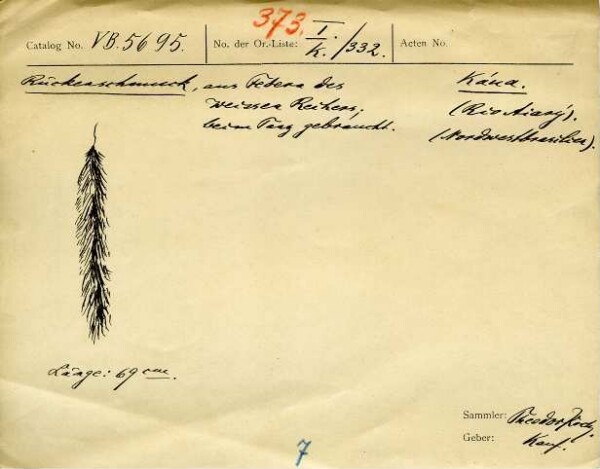 373.
Catalog No. VB. 5695.
No. der Or.-Liste: I. K. /332.
Acten No.
Rückenschmuck, aus Federn des
weissen Reihers,
beim Tanz gebraucht.
Káua.
(Rio Aiarý).
(Nordwestbrasilien).
Länge: 69 cm.
Sammler: Theodor Koch.
Geber: Kauf.
7